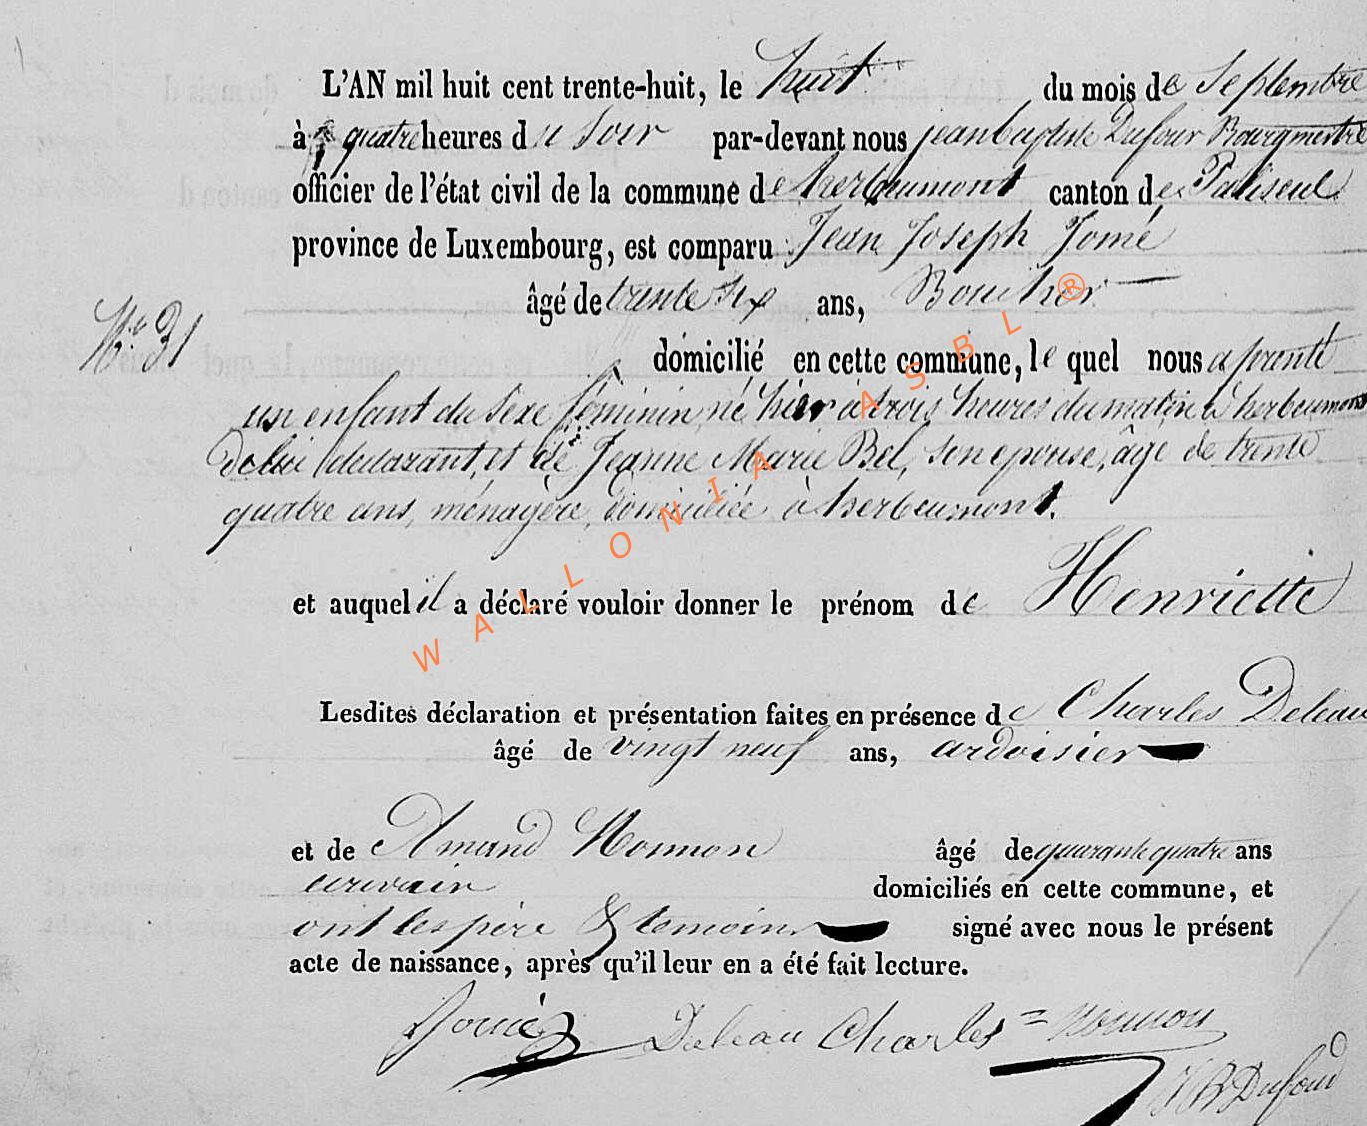 L'AN mil huit cent trente-huit, le huit du mois de Septembre
à quatre heures du Soir par-devant nous jeanbaptiste Dufour Bourgmestre
officier de l'état civil de la commune de herbeumont canton de Paliseul
province de Luxembourg, est comparu Jean Joseph Jomé
âgé de trente six ans, Boucher
N.º 31
domicilié en cette commune, le quel nous a présenté
un enfant du sexe féminin, né hier à trois heures du matin à herbeumont
de lui declarant, et de Jeanne Marie Bel, son epouse, âgé de trente
quatre ans, ménagère, domiciliée à herbeumont.
et auquel il a déclaré vouloir donner le prénom de Henriette
Lesdites déclaration et présentation faites en présence de Charles Deleau
âgé de vingt neuf ans, ardoisier
et de Amand Nonnon âgé de quarante quatre ans
ecrivain domiciliés en cette commune, et
ont les père & temoins signé avec nous le présent
acte de naissance, après qu'il leur en a été fait lecture.
Jomé Deleau Charles = Nonnon
JB Dufour
WALLONIA ASBL ®